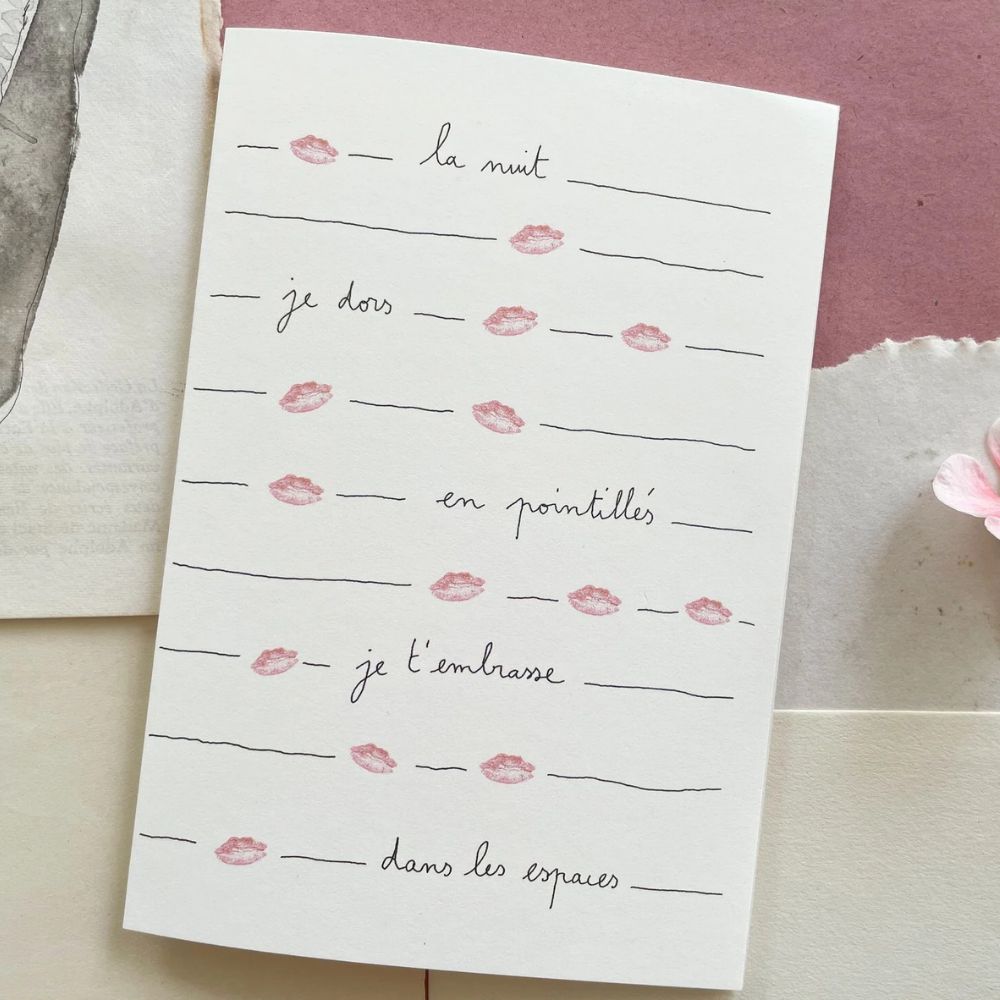 la nuit
je dors
en pointillés
je t'embrasse
dans les espaces